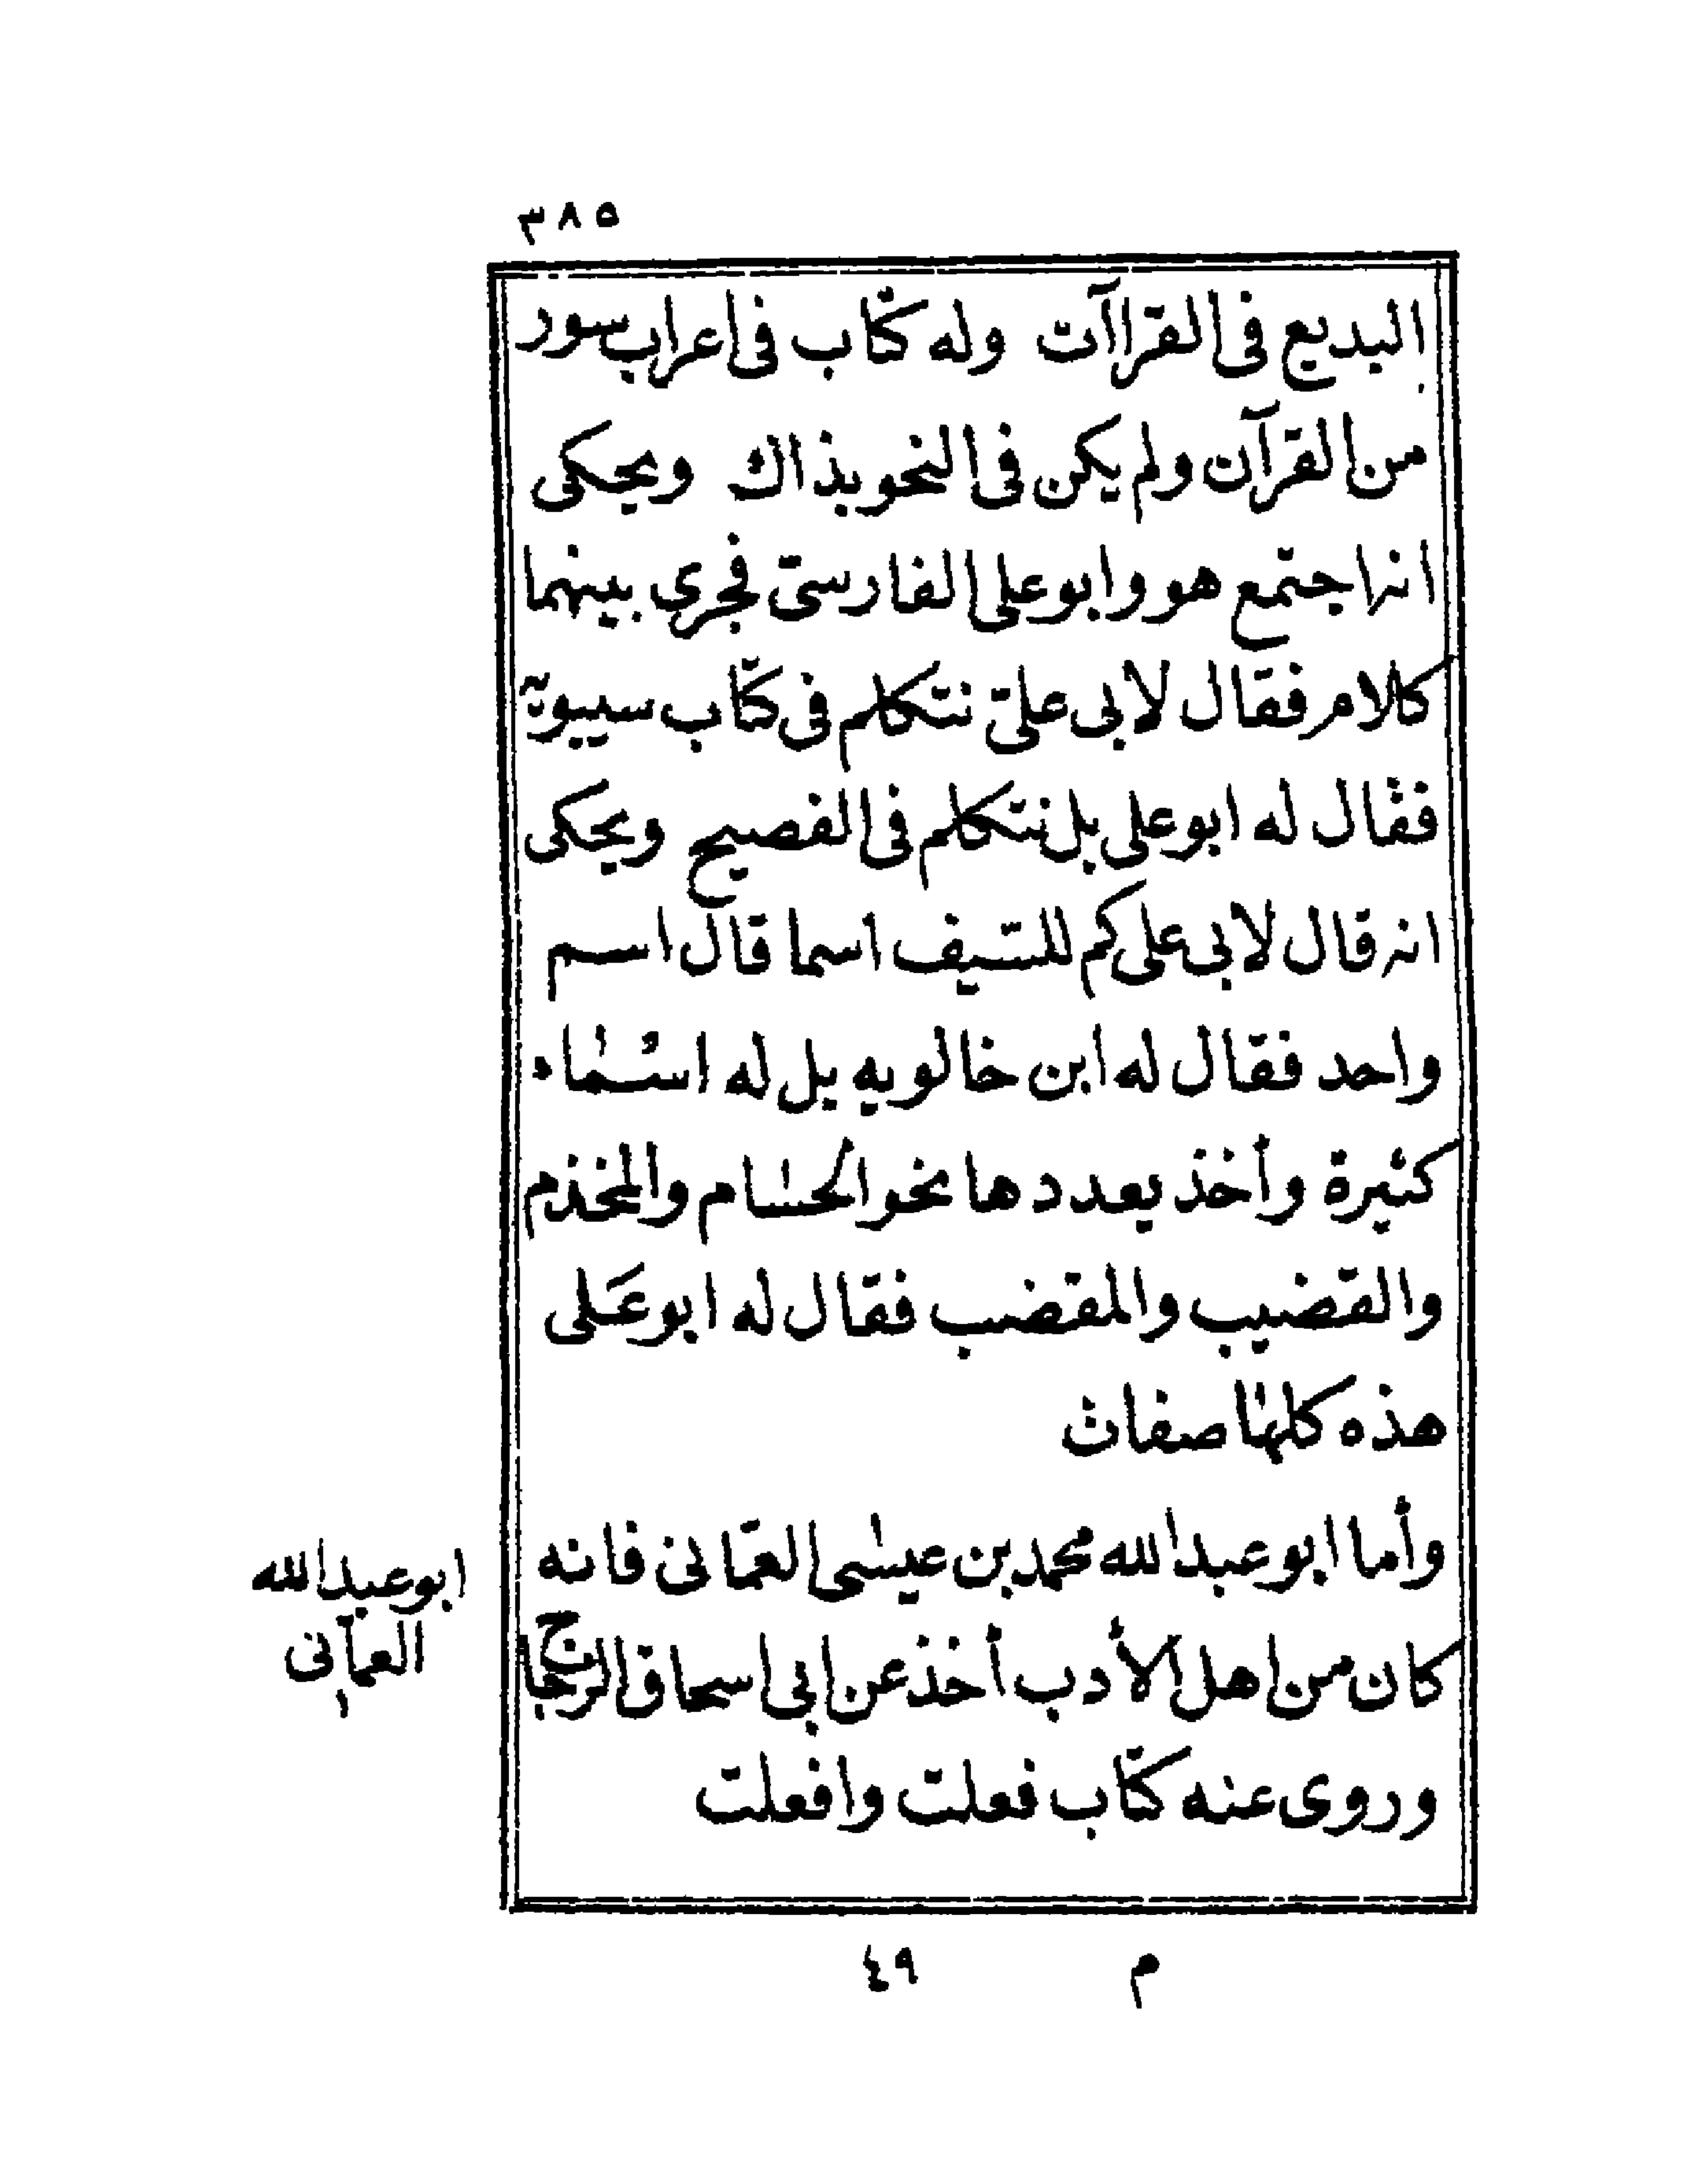 ٣٨٥
البديع في القراآت وله كتاب في اعراب سور
من القرآن ولم يكن في النحو بذاك ويحكى
انه اجتمع هو وابو على الفارسىّ فجرى بينهما
كلام فقال لابى علىّ نتكلم في كتاب سيبويه
فقال له ابو على بل نتكلم في الفصيح ويحكى
انه قال لابى على كم للسّيف اسما قال اسم
واحد فقال له ابن خالويه بل له اسماء
كثيرة وأخذ يعددها نحو الحسام والمخذم
والقضيب والمقضب فقال له ابو على
هذه كلها صفات
وأما ابو عبد الله محمد بن عيسى العمّانى فانه
كان من اهل الأدب أخذ عن ابى اسحاق الزجاج
وروى عنه كتاب فعلت وافعلت
ابو عبد الله
العمّانى
م ٤٩